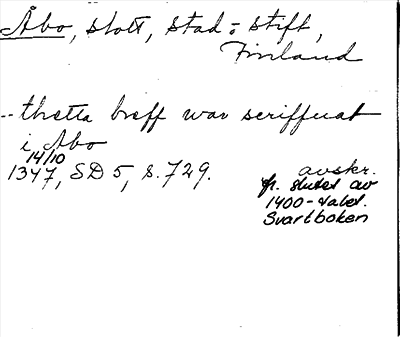 Åbo, slott, stad o stift,
Finland
-- thetta breff war scriffuat
i Åbo
14/10
1347, SD 5, s. 729.
avskr.
fr. slutet av
1400-talet.
Svartboken